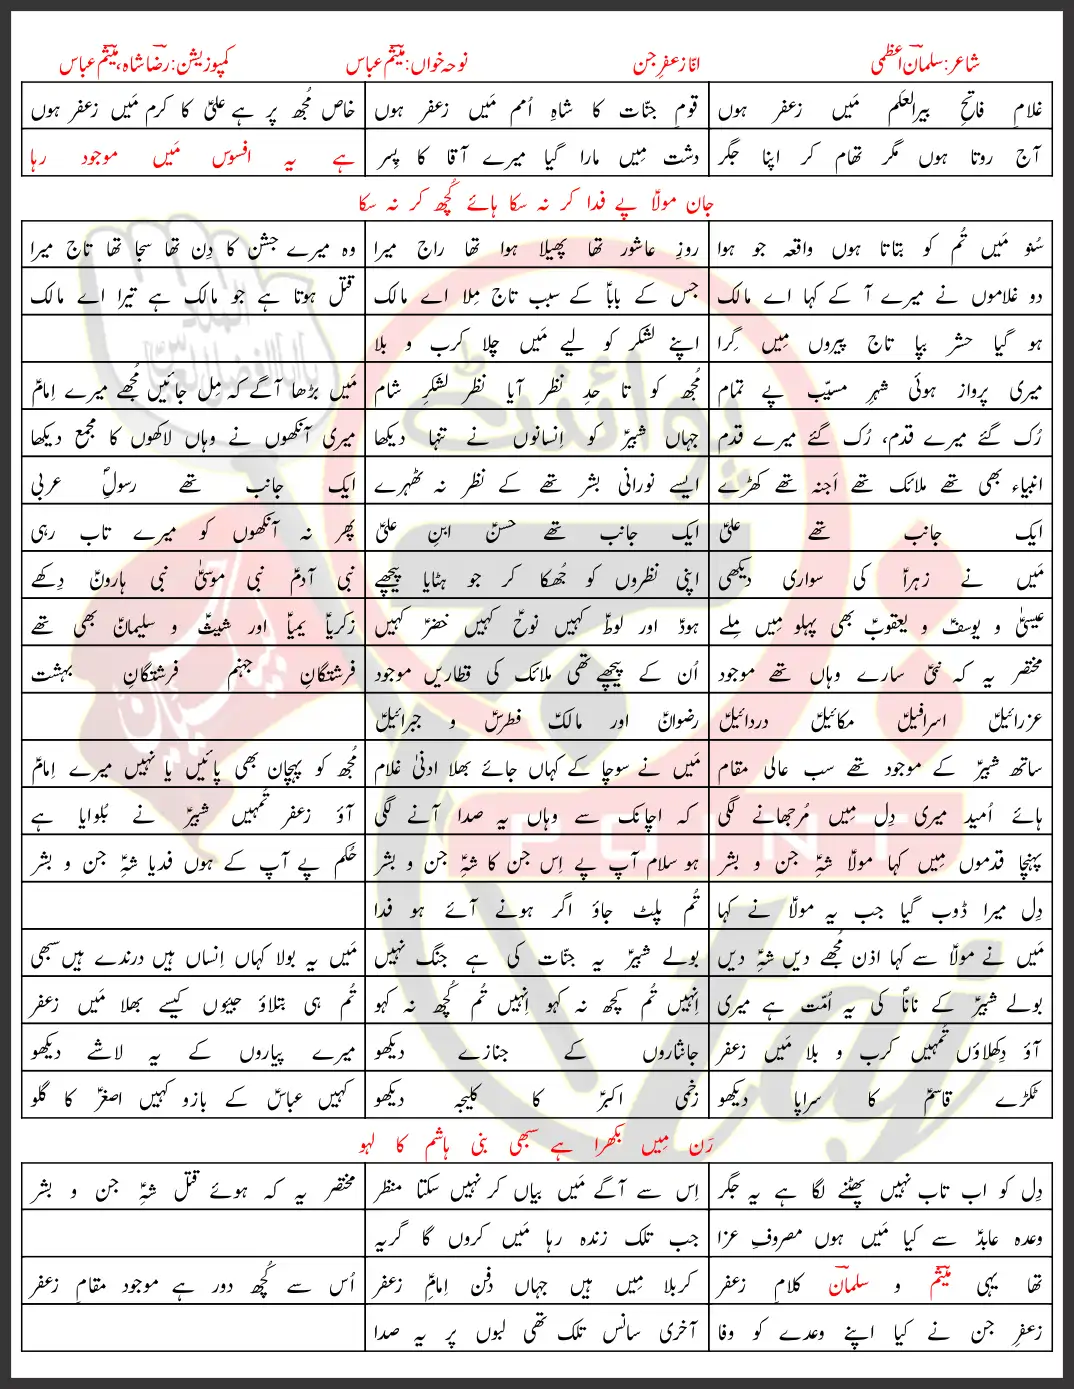 شاعر: سلمان اعظمی انا زعفرِ جن نوحہ خواں: میثم عباس کمپوزیشن: رضا شاہ، میثم عباس
غلامِ فاتحِ بیرالعلم مَیں زعفر ہوں قومِ جنّات کا شاہِ اُمم مَیں زعفر ہوں خاص مُجھ پر ہے علیؑ کا کرم مَیں زعفر ہوں
آج روتا ہوں مگر تھام کر اپنا جگر دشت مِیں مارا گیا میرے آقا کا پِسر ہے یہ افسوس مَیں موجود رہا
جان مولاؑ پے فدا کر نہ سکا ہائے کُچھ کر نہ سکا
سُنو مَیں تُم کو بتاتا ہوں واقعہ جو ہوا روزِ عاشور تھا پھیلا ہوا تھا راج میرا وہ میرے جشن کا دِن تھا سجا تھا تاج میرا
دو غلاموں نے میرے آ کے کہا اے مالک جس کے باباؑ کے سبب تاج مِلا اے مالک قتل ہوتا ہے جو مالک ہے تیرا اے مالک
ہو گیا حشر بپا تاج پیروں مِیں گِرا اپنے لشکر کو لیے مَیں چلا کرب و بلا
میری پرواز ہوئی شہرِ مسیّب پے تمام مُجھ کو تا حدِ نظر آیا نظر لشکرِ شام مَیں بڑھا آگے کہ مِل جائیں مُجھے میرے اِمامؑ
رُک گئے میرے قدم، رُک گئے میرے قدم جہاں شبیرؑ کو اِنسانوں نے تنہا دیکھا میری آنکھوں نے وہاں لاکھوں کا مجمع دیکھا
انبیاء بھی تھے ملائک تھے اَجنہ تھے کھڑے ایسے نورانی بشر تھے کے نظر نہ ٹھہرے ایک جانب تھے رسولِؐ عربی
ایک جانب تھے علیؑ ایک جانب تھے حسنؑ ابنِ علیؑ پھر نہ آنکھوں کو میرے تاب رہی
مَیں نے زہراؑ کی سواری دیکھی اپنی نظروں کو جُھکا کر جو ہٹایا پیچھے نبی آدمؑ نبی موسیٰؑ نبی ہارونؑ دِکھے
عیسیٰؑ و یوسفؑ و یعقوبؑ بھی پہلو مِیں مِلے ہودؑ اور لوطؑ کہیں نوحؑ کہیں خضرؑ کہیں زکریاؑ یمیاؑ اور شیثؑ و سلیمانؑ بھی تھے
مختصر یہ کہ نبیؑ سارے وہاں تھے موجود اُن کے پیچھے تھی ملائک کی قطاریں موجود فرشتگانِ جہنم فرشتگانِ بہشت
عزرائیلؑ اسرافیلؑ مکائیلؑ دردائیلؑ رضوانؑ اور مالکؑ فطرسؑ و جبرائیلؑ
ساتھ شبیرؑ کے موجود تھے سب عالی مقام مَیں نے سوچا کے کہاں جائے بھلا ادنیٰ غلام مُجھ کو پہچان بھی پائیں یا نہیں میرے اِمامؑ
ہائے اُمید میری دِل مِیں مُرجھانے لگی کہ اچانک سے وہاں یہ صدا آنے لگی آؤ زعفر تُمہیں شبیرؑ نے بُلوایا ہے
پہنچا قدموں مِیں کہا مولاؑ شہِؑ جن و بشر ہو سلام آپ پے اِس جن کا شہِؑ جن و بشر حُکم پے آپ کے ہوں فدیا شہِؑ جن و بشر
دِل میرا ڈوب گیا جب یہ مولاؑ نے کہا تُم پلٹ جاؤ اگر ہونے آئے ہو فدا
مَیں نے مولاؑ سے کہا اذن مُجھے دیں شہِؑ دیں بولے شبیرؑ یہ جنّات کی ہے جنگ نہیں مَیں یہ بولا کہاں اِنساں ہیں درندے ہیں سبھی
بولے شبیرؑ کے ناناؐ کی یہ اُمّت ہے میری اِنہیں تُم کچھ نہ کہو اِنہیں تُم کُچھ نہ کہو تُم ہی بتلاؤ جیوں کیسے بھلا مَیں زعفر
آؤ دِکھلاؤں تُمہیں کرب و بلا مَیں زعفر جانثاروں کے جنازے دیکھو میرے پیاروں کے یہ لاشے دیکھو
ٹکڑے قاسمؑ کا سراپا دیکھو زخمی اکبرؑ کا کلیجہ دیکھو کہیں عباسؑ کے بازو کہیں اصغرؑ کا گلو
رَن مِیں بکھرا ہے سبھی بنی ہاشم کا لہو
دِل کو اب تاب نہیں پھٹنے لگا ہے یہ جگر اِس سے آگے مَیں بیاں کر نہیں سکتا منظر مختصر یہ کہ ہوئے قتل شہِؑ جن و بشر
وعدہ عابدؑ سے کیا مَیں ہوں مصروفِ عزا جب تلک زندہ رہا مَیں کروں گا گریہ
تھا یہی میثم و سلمان کلامِ زعفر کربلا مِیں ہیں جہاں دفن اِمامِؑ زعفر اُس سے کُچھ دور ہے موجود مقامِ زعفر
زعفرِ جن نے کیا اپنے وعدے کو وفا آخری سانس تلک تھی لبوں پر یہ صدا
POINT